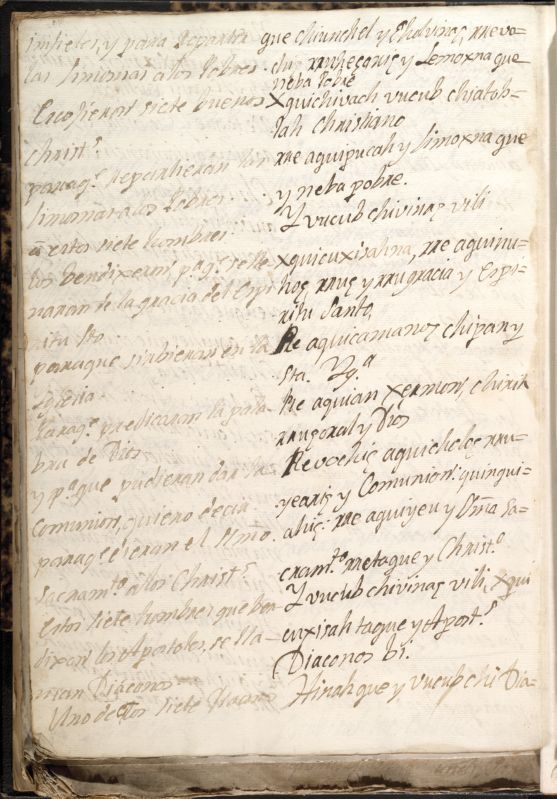 infieles, y para repartir
las limosnas a los Pobres.
Escojieron siete buenos
Christ.s
para q.e repartieran las
limosnas a los Pobres.
a estos siete hombres
los bendixeron p.a q.e se lle
naran de la gracia del Espi
ritu S.to
para que subieran en la
Yglesia.
Para q.e predicaran la pala
bra de Dios
y p.a que pudieran dar la
comunion, quiero decir
para q.e dieran el S.mo
Sacram.to a los Christ.s
Estos siete hombres que ben
dixeron los Apostoles, se lla
man Diaconos
Uno de los siete Diaconos
que chiunchel y Cholvinaꜫ, rre vo-
chi y Lemoxna que
neba Pobre
Xquichivach vucub chiatob-
lah christiano
rre aquipucah y limoxna que
y neba pobre.
Y vucub chivinaꜫ vili
xquicuxisahina, rre aquinu-
hoꜫ rruꜫ y rrugracia y Espi-
ritu Santo,
Re aquicamanoꜫ chipan y
Sta. Yg.a
Re aquian xermon, chirih
rruꜫoral y Dios
Re vochic aquichelcꜫ rru-
yeariꜫ y Comunion: quinqui-
aluꜫ: rre aquiyeu y S.mo Sa-
cram.to rretaque y Christ.o
Y vucub chivinaꜫ vili, xqui
cuxisah taque y Apost.s
Diaconos bi.
Hinahque y vucub chi Dia-